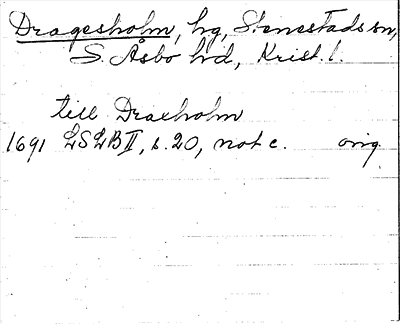 Dragesholm, hg, Stenestads sn,
S. Åsbo hd, Krist. l.
till Draeholm
1691 LSLB II, s. 20, not c. orig